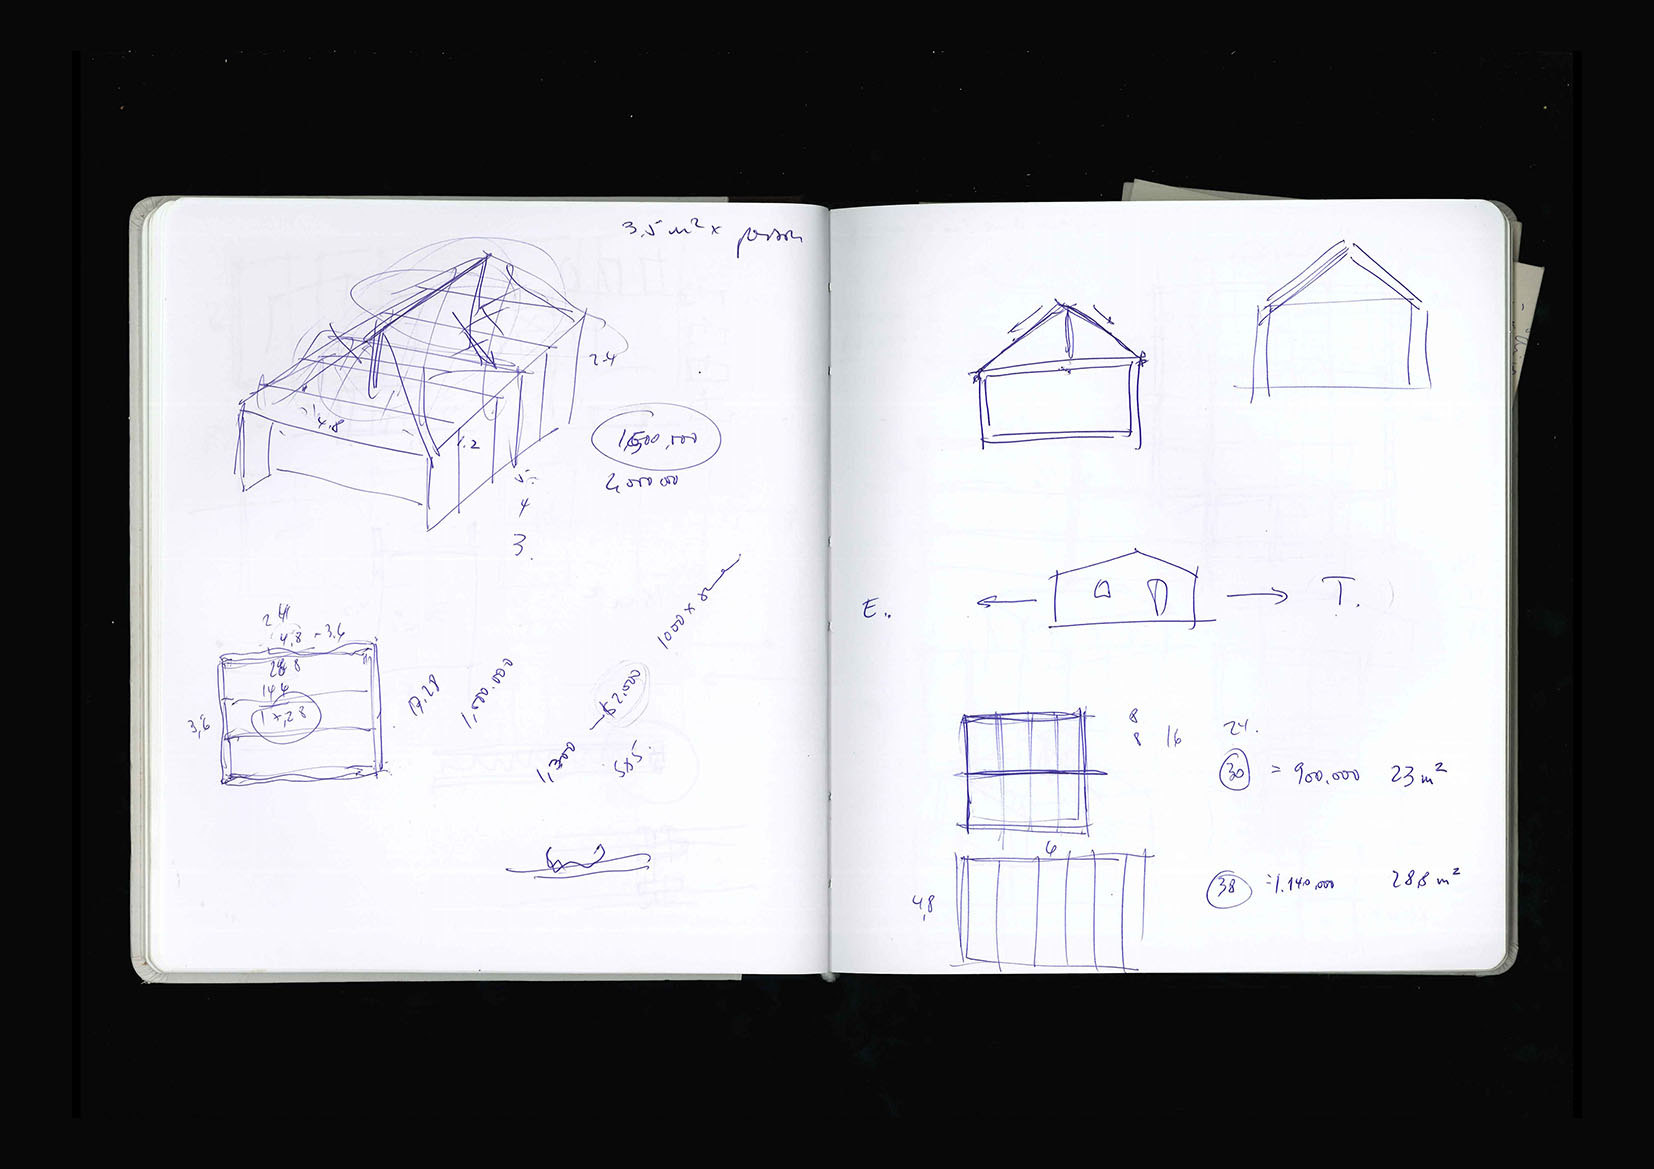 3,5 m² x person
2.4
4.8
1.2
1,500,000
2000000
5
4
3.
1000 x
24
4,8 - 3.6
28 8
14 4
17,28
3,6
17.28
1,500.000
1,300
$2,000
585.
E.
T.
8
8 16
24.
30 = 900,000 23 m²
6
4,8
38 = 1.140,000 28,8 m²